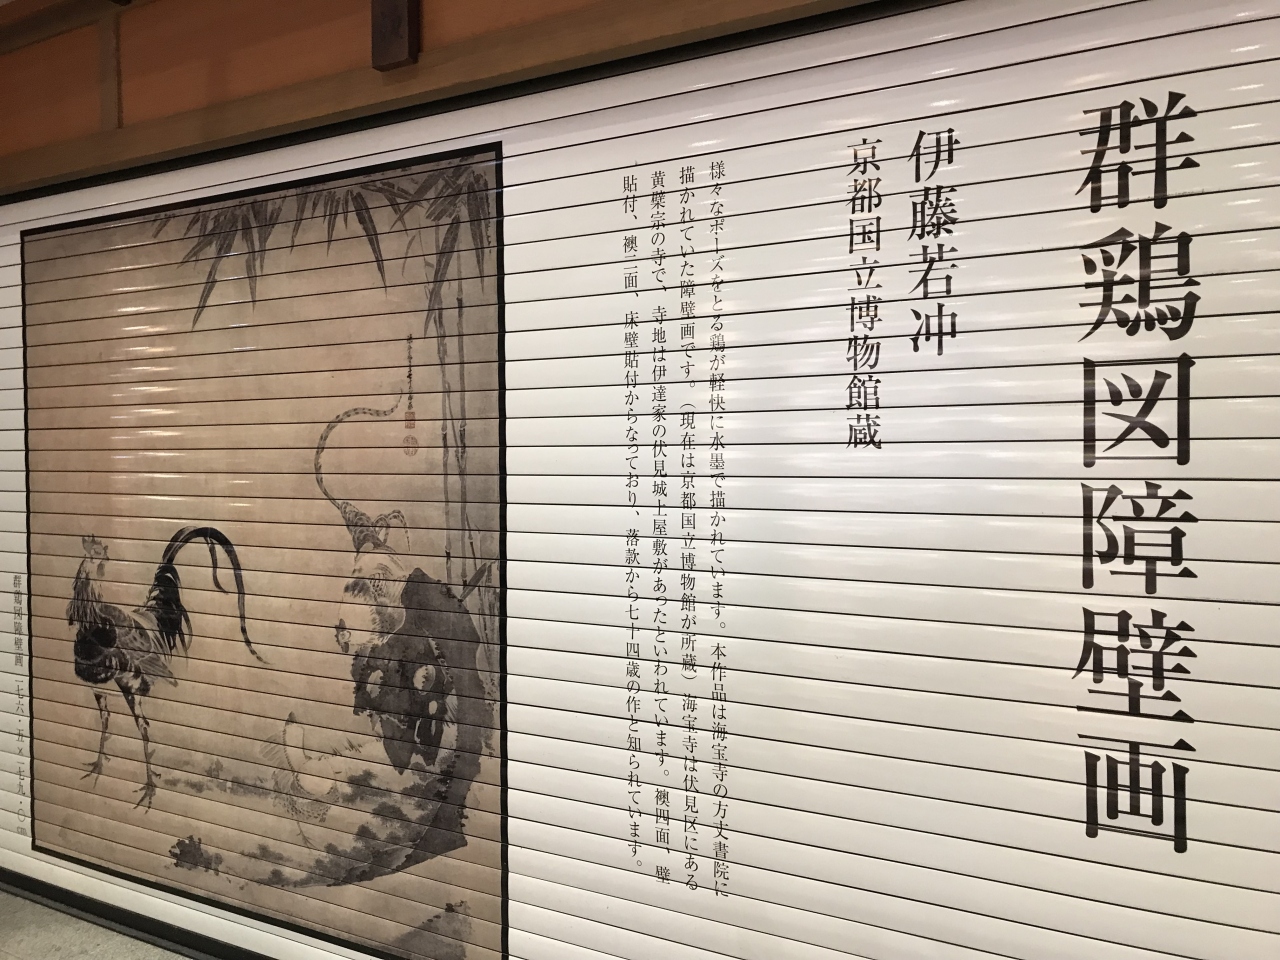 群鶏図障壁画
伊藤若冲
京都国立博物館蔵
様々なポーズをとる鶏が軽快に水墨で描かれています。本作品は海宝寺の方丈書院に
描かれていた障壁画です。（現在は京都国立博物館が所蔵）海宝寺は伏見区にある
黄檗宗の寺で、寺地は伊達家の伏見城上屋敷があったといわれています。襖四面、壁
貼付、襖二面、床壁貼付からなっており、落款から七十四歳の作と知られています。
群鶏図障壁画 一七六・五×一七九・〇㎝